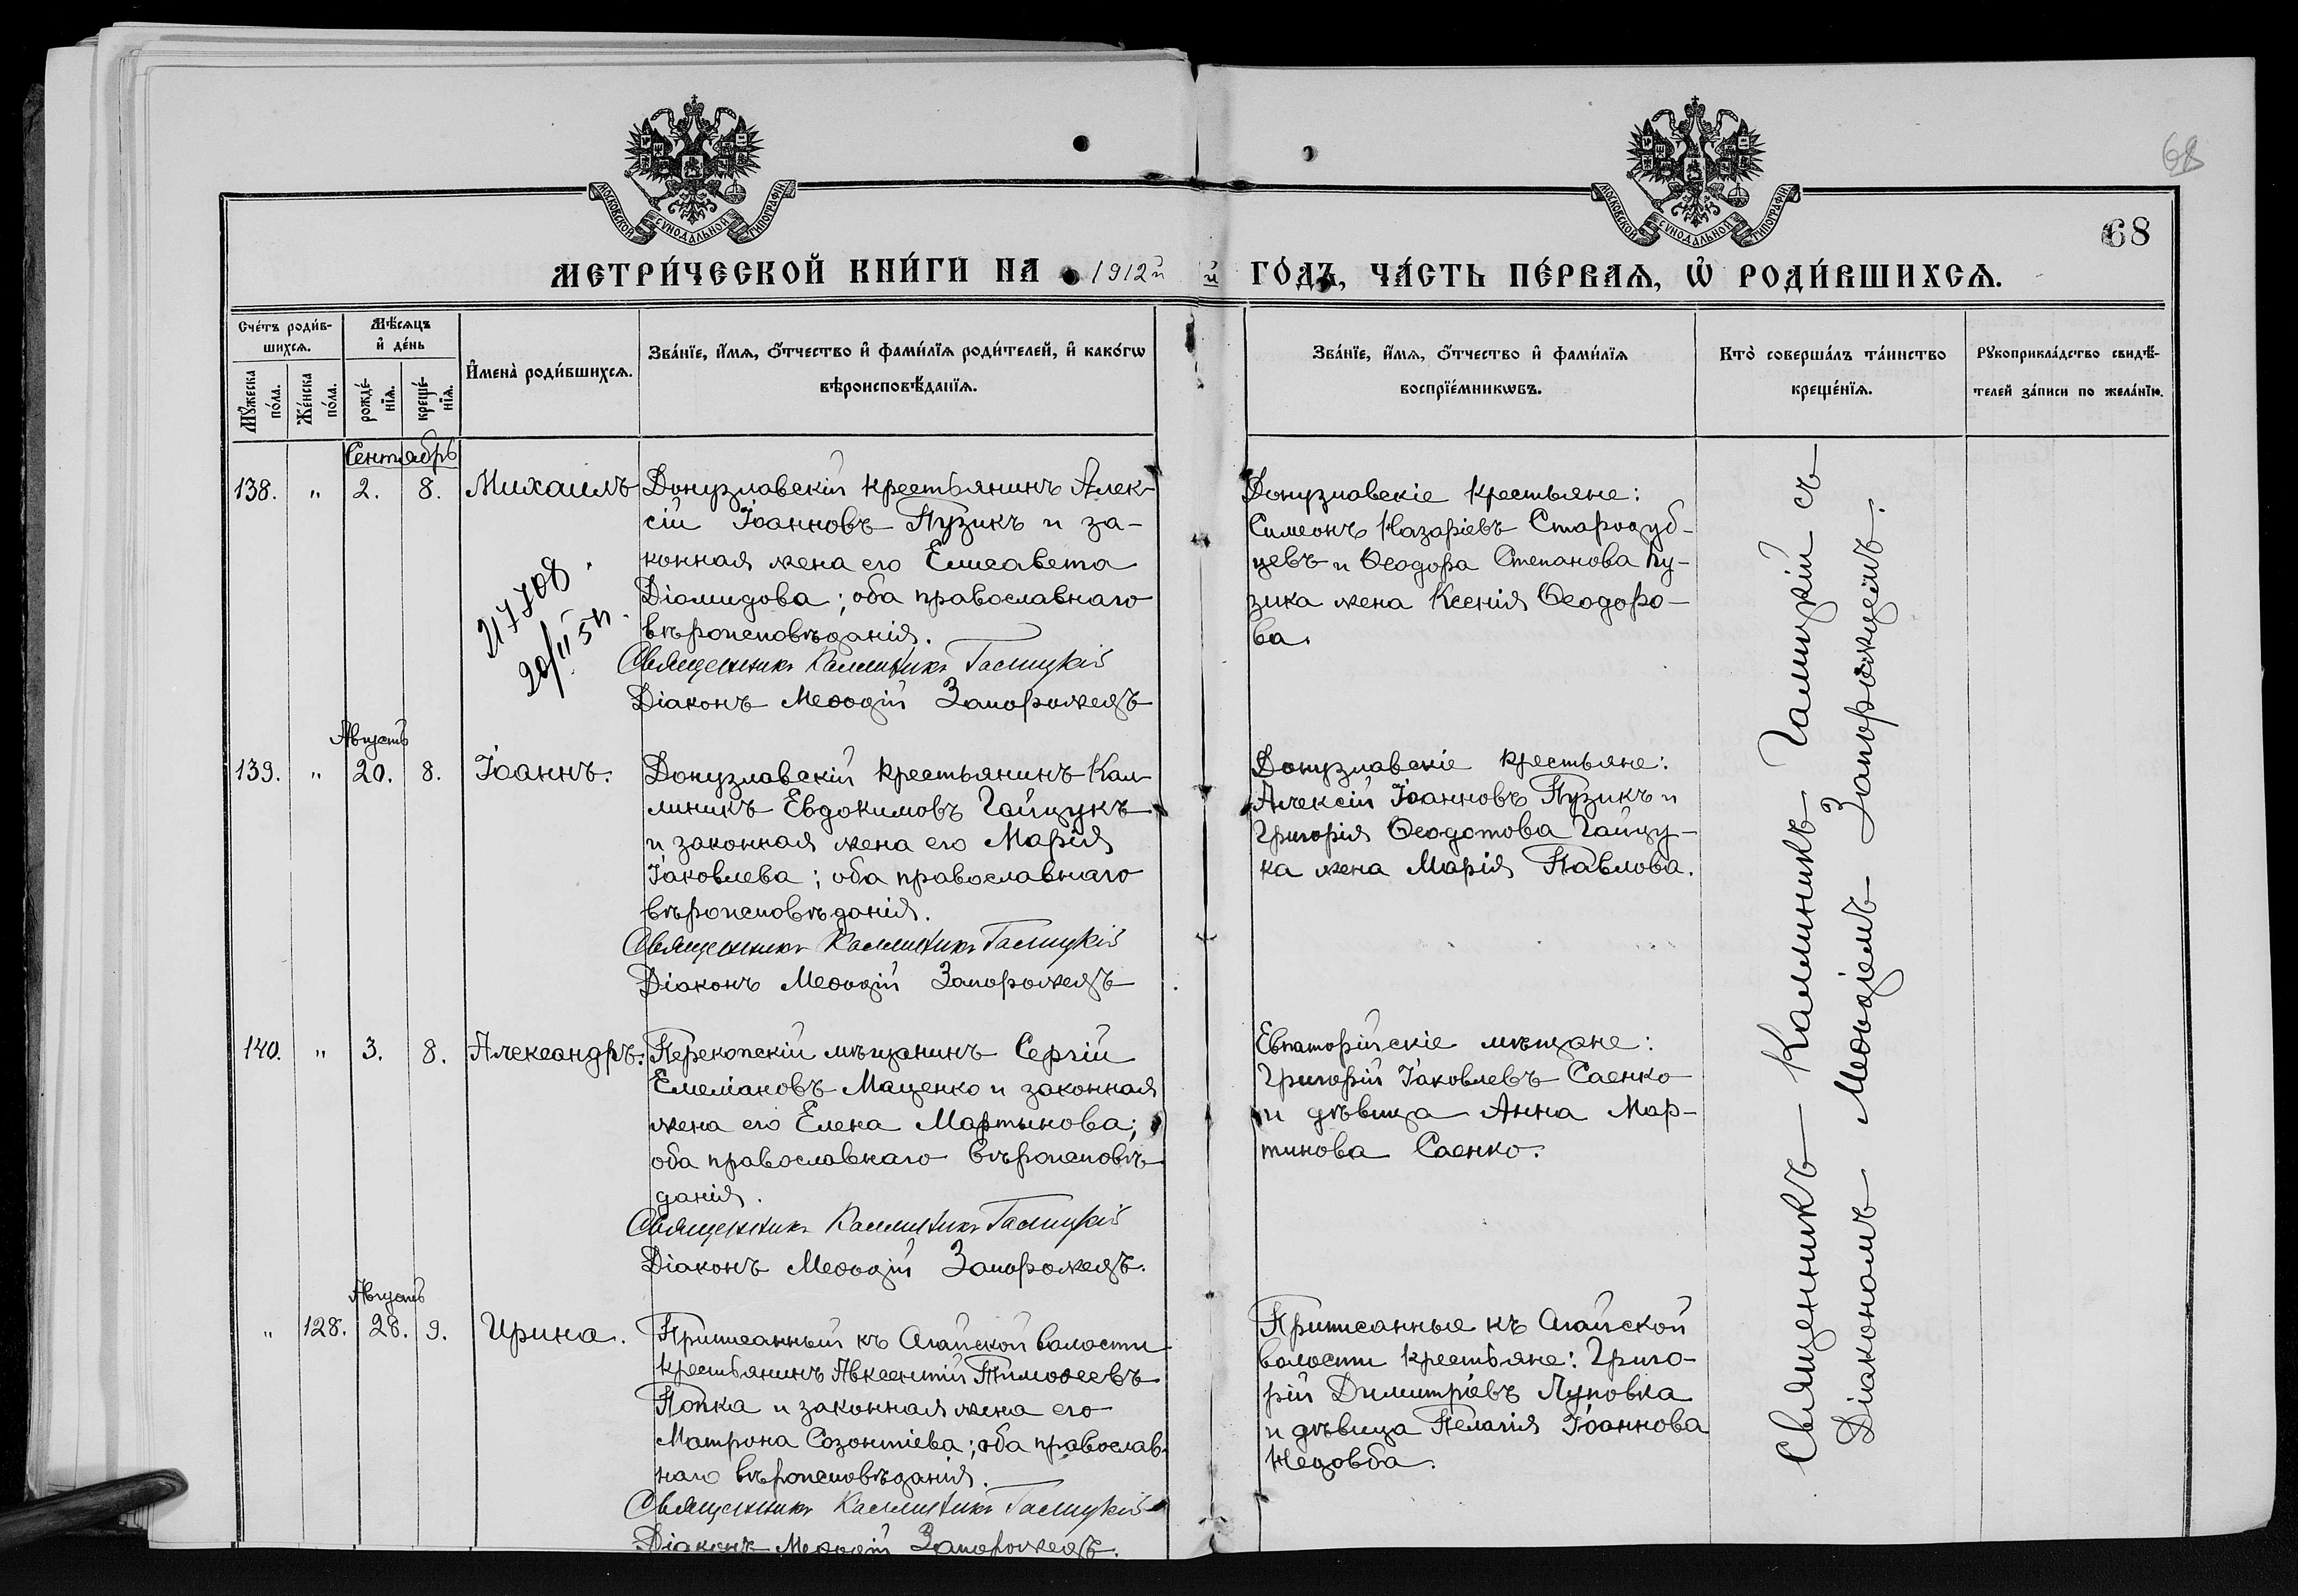 68
68
МОСКОВСКОЙ СѴНОДАЛЬНОЙ ТИПОГРАФІИ
МОСКОВСКОЙ СѴНОДАЛЬНОЙ ТИПОГРАФІИ
МЕТРИ́ЧЕСКОЙ КНИ́ГИ НА 1912й й ГО́ДЪ, ЧА́СТЬ ПЕ́РВАѦ, Ѡ҆ РОДИ́ВШИХСѦ.
Сче́тъ роди́в-
шихсѧ.
Мꙋ́жеска
по́ла.
Же́нска
по́ла.
Мѣ́сѧцъ
и҆ де́нь
рожде́-
нїѧ.
креще́-
нїѧ.
И҆мена̀ роди́вшихсѧ.
Зва́нїе, и҆́мѧ, ѻ҆́тчество и҆ фами́лїѧ роди́телей, и҆ како́гѡ
вѣроисповѣ́данїѧ.
Зва́нїе, и҆́мѧ, ѻ҆́тчество и҆ фами́лїѧ
воспрїе́мникѡвъ.
Кто̀ соверша́лъ та́инство
креще́нїѧ.
Рꙋкоприкла́дство свидѣ́-
телей за́писи по жела́нїю.
Сентябрь
138. " 2. 8. Михаилъ
Донузлавскій крестьянинъ Алек-
сій Іоанновъ Пузикъ и за-
конная жена его Елисавета
Діомидова; оба православнаго
вѣроисповѣданія.
Священникъ Каллиникъ Галицкій
Діаконъ Меѳодій Запорожецъ
Донузлавскіе крестьяне:
Симеонъ Назаріевъ Стародуб-
цевъ и Ѳеодора Степанова Пу-
зика жена Ксенія Ѳеодоро-
ва.
21708
20/II 5
Августъ
139. " 20. 8. Іоаннъ.
Донузлавскій крестьянинъ Кал-
линикъ Евдокимовъ Гайцукъ
и законная жена его Марія
Іаковлева; оба православнаго
вѣроисповѣданія.
Священникъ Каллиникъ Галицкій
Діаконъ Меѳодій Запорожецъ
Донузлавскіе крестьяне:
Алексій Іоанновъ Пузикъ и
Григорія Ѳеодотова Гайцу-
ка жена Марія Павлова.
140. " 3. 8. Александръ.
Перекопскій мѣщанинъ Сергій
Емеліановъ Маценко и законная
жена его Елена Мартынова;
оба православнаго вѣроисповѣ-
данія.
Священникъ Каллиникъ Галицкій
Діаконъ Меѳодій Запорожецъ.
Евпаторійскіе мѣщане:
Григорій Іаковлевъ Саенко
и дѣвица Анна Мар-
тинова Саенко.
Августъ
" 128. 28. 9. Ирина.
Приписанный къ Агайской волости
крестьянинъ Авксентій Тимоѳеевъ
Попка и законная жена его
Матрона Созонтіева; оба православ-
наго вѣроисповѣданія.
Священникъ Каллиникъ Галицкій
Діаконъ Меѳодій Запорожецъ.
Приписанные къ Агайской
волости крестьяне: Григо-
рій Димитріевъ Луповка
и дѣвица Пелагія Іоаннова
Недовба.
Священникъ Каллиникъ Галицкій съ
Діакономъ Меѳодіемъ Запорожцемъ.